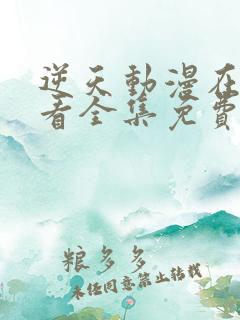 逆天動漫在
看全集免費
粮多多
未经同意禁止转载